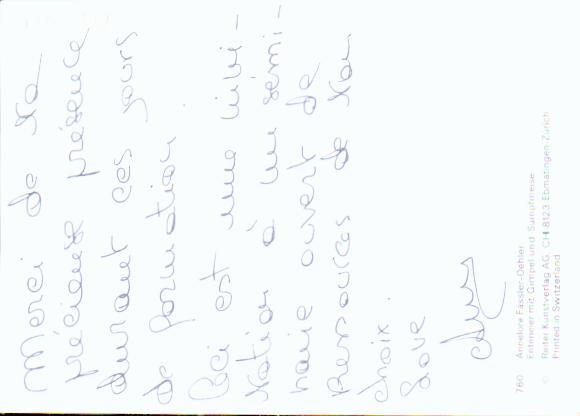 Merci de ta
précieuse présence
durant ces jours
de formation
Ceci est une invi-
tation à un sémi-
naire ouvert de
Ressources de ton
choix.
Love
760 Annelore Fässler-Oehler
Entenner mit Gimpel und Sumpfmeise
© Reiter Kunstverlag AG, CH 8123 Ebmatingen-Zürich
Printed in Switzerland